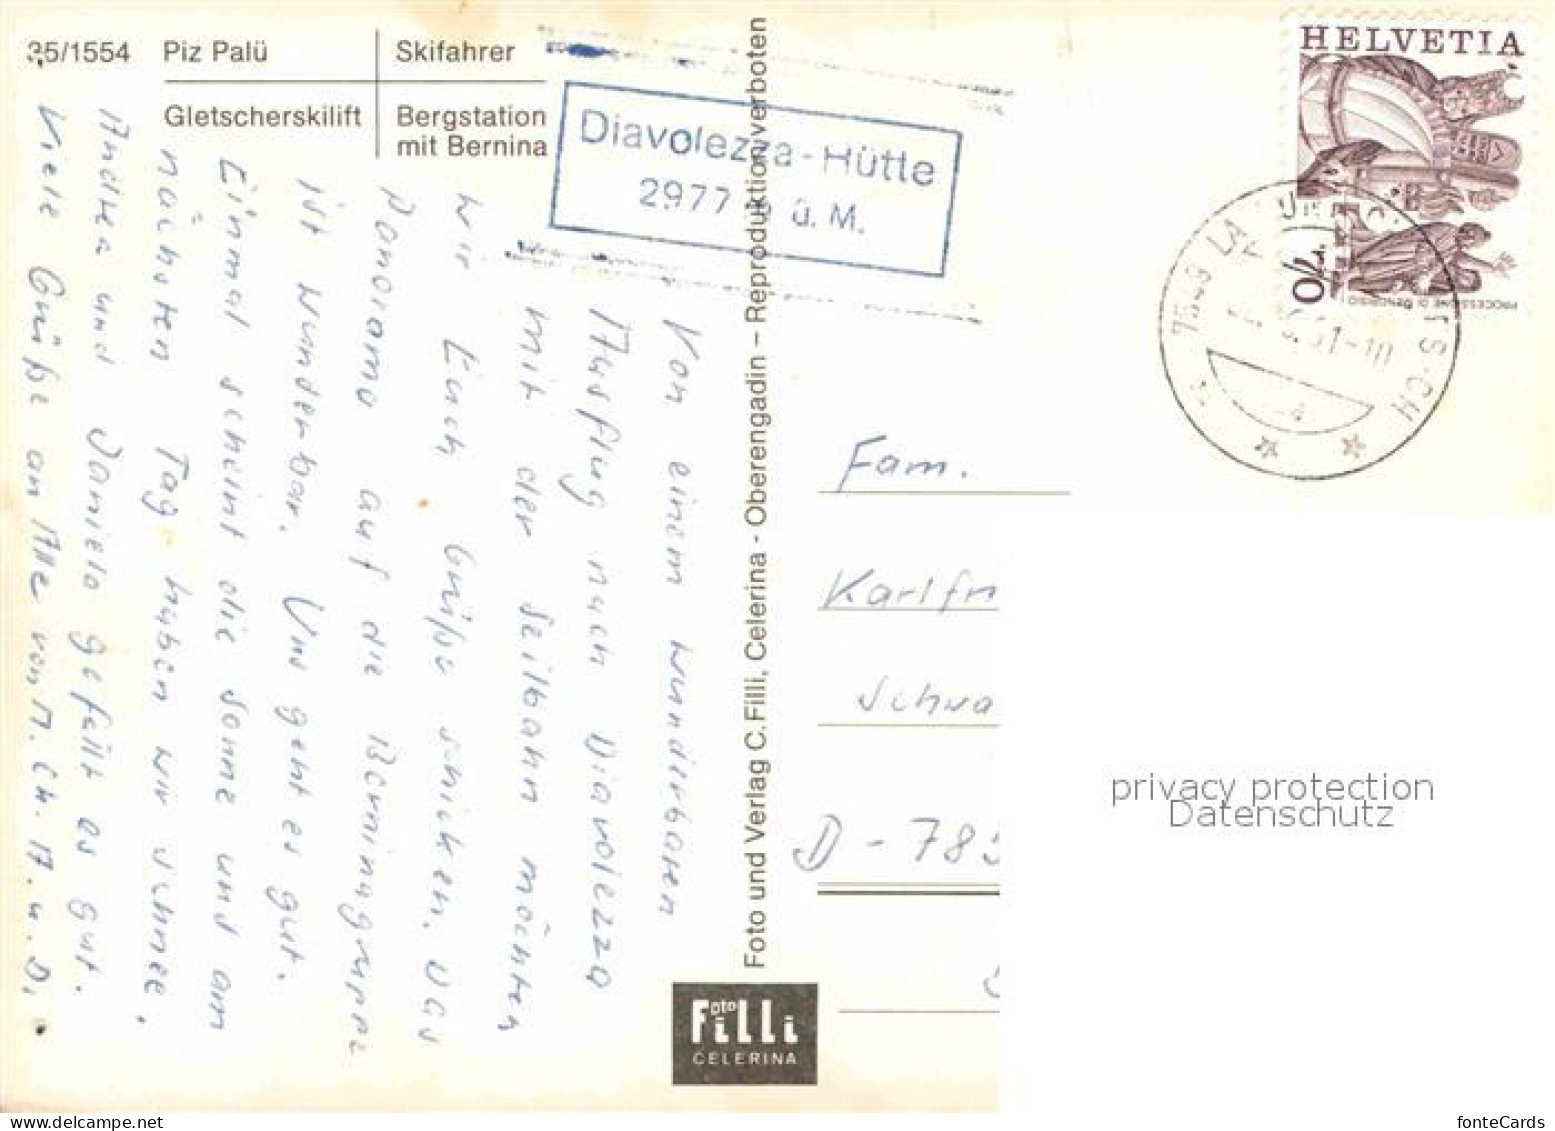 35/1554
Piz Palü
Skifahrer
Gletscherskilift
Bergstation
mit Bernina
Diavolezza-Hütte
2977 ü. M.
HELVETIA
70
PROCESSIONE DI MENDRISIO
7549 LA
Von einem wunderbaren
Ausflug nach Diavolezza
mit der Seilbahn möchten
wir Euch Grüße schicken. Das
Panorama auf die Berninagruppe
ist wunderbar. Uns geht es gut.
Einmal scheint die Sonne und am
nächsten Tag haben wir Schnee.
Andrea und Daniela gefällt es gut.
Viele Grüße an Alle von M. Ch. A. u. D.
Foto und Verlag C. Filli, Celerina - Oberengadin – Reproduktion verboten
Foto
Filli
CELERINA
Fam.
Karlfr
Schwa
D - 78
privacy protection
Datenschutz
fonteCards
www.delcampe.net